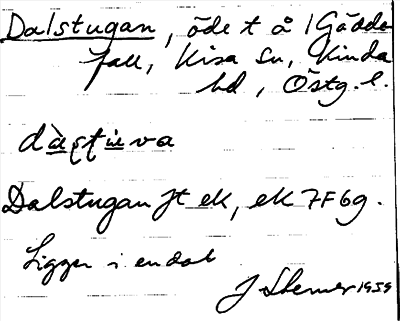 Dalstugan, öde t å 1 Gäddefall, Kisa Sn, Kinda hd, Östg. l.
Dalstugan Jt ek, ek 7F 6g.
Ligger i en dal
1959